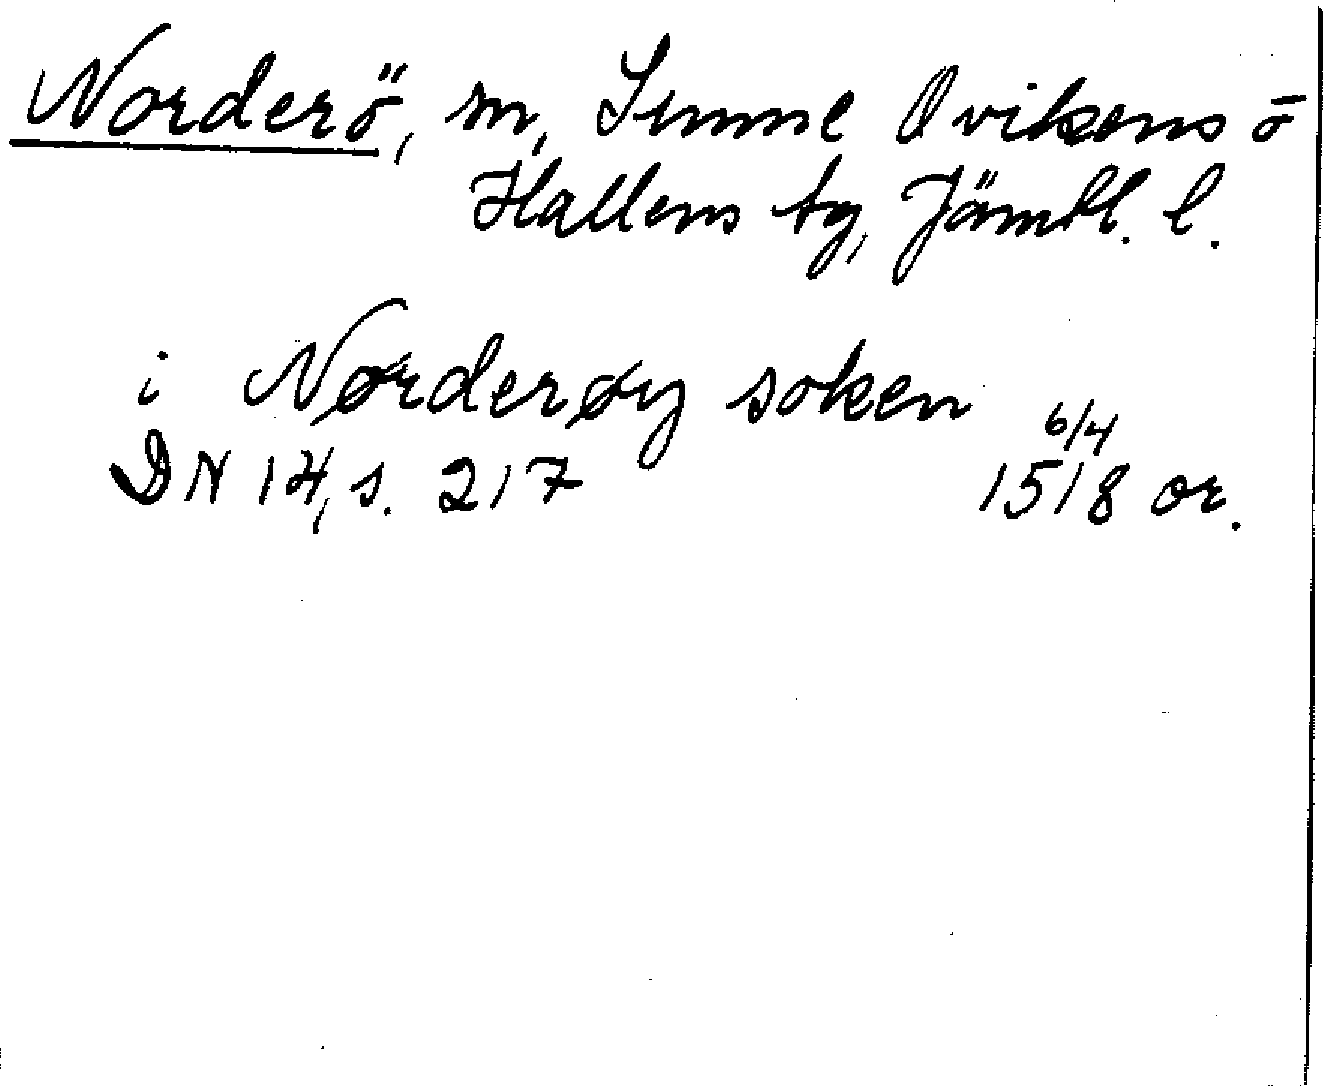 Norderö, sn, Sunne Ovikens o
Hallens tg, Jämtl. l.
i Nørderøy soken
6/4
DN 14, s. 217 1518 or.